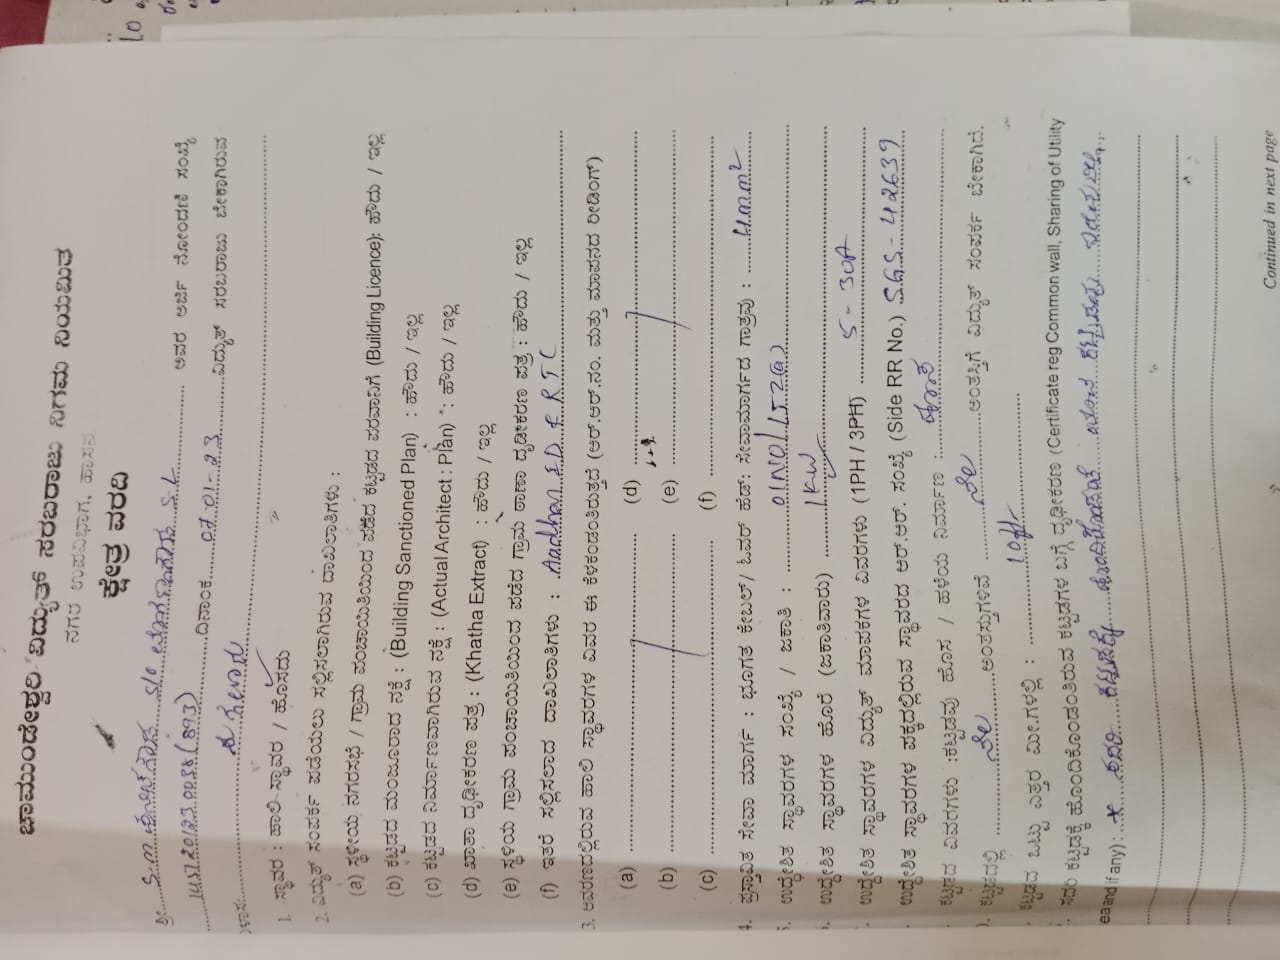 ಚಾಮುಂಡೇಶ್ವರಿ ವಿದ್ಯುತ್ ಸರಬರಾಜು ನಿಗಮ ನಿಯಮಿತ
ನಗರ ಉಪವಿಭಾಗ, ಹಾಸನ
ಕ್ಷೇತ್ರ ವರದಿ
ಶ್ರೀ S/o ರವರ ಅರ್ಜಿ ನೋಂದಣಿ ಸಂಖ್ಯೆ
ದಿನಾಂಕ 07-01-23 ವಿದ್ಯುತ್ ಸರಬರಾಜು ಬೇಕಾಗಿರುವ
1. ಸ್ಥಾವರ : ಹಾಲಿ ಸ್ಥಾವರ / ಹೊಸದು
2. ವಿದ್ಯುತ್ ಸಂಪರ್ಕ ಪಡೆಯಲು ಸಲ್ಲಿಸಲಾಗಿರುವ ದಾಖಲಾತಿಗಳು :
(a) ಸ್ಥಳೀಯ ನಗರಸಭೆ / ಗ್ರಾಮ ಪಂಚಾಯಿತಿಯಿಂದ ಪಡೆದ ಕಟ್ಟಡದ ಪರವಾನಿಗೆ (Building Licence): ಹೌದು / ಇಲ್ಲ
(b) ಕಟ್ಟಡದ ಮಂಜೂರಾದ ನಕ್ಷೆ : (Building Sanctioned Plan) : ಹೌದು / ಇಲ್ಲ
(c) ಕಟ್ಟಡದ ನಿರ್ಮಾಣವಾಗಿರುವ ನಕ್ಷೆ : (Actual Architect : Plan) : ಹೌದು / ಇಲ್ಲ
(d) ಖಾತಾ ದೃಢೀಕರಣ ಪತ್ರ : (Khatha Extract) : ಹೌದು / ಇಲ್ಲ
(e) ಸ್ಥಳೀಯ ಗ್ರಾಮ ಪಂಚಾಯಿತಿಯಿಂದ ಪಡೆದ ಗ್ರಾಮ ಠಾಣಾ ದೃಢೀಕರಣ ಪತ್ರ : ಹೌದು / ಇಲ್ಲ
(f) ಇತರೆ ಸಲ್ಲಿಸಲಾದ ದಾಖಲಾತಿಗಳು : Aadhar RTC
3. ಆವರಣದಲ್ಲಿರುವ ಹಾಲಿ ಸ್ಥಾವರಗಳ ವಿವರ ಈ ಕೆಳಕಂಡಂತಿರುತ್ತದೆ (ಆರ್.ಆರ್.ನಂ. ಮತ್ತು ಮಾಪನದ ರೀಡಿಂಗ್)
(a) (d)
(b) (e)
(c) (f)
4. ಪ್ರಸ್ತಾವಿತ ಸೇವಾ ಮಾರ್ಗ : ಭೂಗತ ಕೇಬಲ್/ ಓವರ್ ಹೆಡ್: ಸೇವಾಮಾರ್ಗದ ಗಾತ್ರವು : 4mm²
ಉದ್ದೇಶಿತ ಸ್ಥಾವರಗಳ ಸಂಖ್ಯೆ / ಜಕಾತಿ : 01NO/ LT2(a)
ಉದ್ದೇಶಿತ ಸ್ಥಾವರಗಳ ಹೊರೆ (ಜಕಾತಿವಾರು) 1KW
ಉದ್ದೇಶಿತ ಸ್ಥಾವರಗಳ ವಿದ್ಯುತ್ ಮಾಪಕಗಳ ವಿವರಗಳು (1PH / 3PH) 5-30A
ಉದ್ದೇಶಿತ ಸ್ಥಾವರಗಳ ಪಕ್ಕದಲ್ಲಿರುವ ಸ್ಥಾವರದ ಆರ್.ಆರ್. ಸಂಖ್ಯೆ (Side RR No.) SGS-42639
ಕಟ್ಟಡದ ವಿವರಗಳು :ಕಟ್ಟಡವು ಹೊಸ / ಹಳೆಯ ನಿರ್ಮಾಣ :
ಕಟ್ಟಡದಲ್ಲಿ ನೆಲ ಅಂತಸ್ತುಗಳಿವೆ ನೆಲ ಅಂತಸ್ತಿಗೆ ವಿದ್ಯುತ್ ಸಂಪರ್ಕ ಬೇಕಾಗಿದೆ.
ಕಟ್ಟಡದ ಒಟ್ಟು ಎತ್ತರ ಮೀ.ಗಳಲ್ಲಿ : 10ft
ಸದರಿ ಕಟ್ಟಡಕ್ಕೆ ಹೊಂದಿಕೊಂಡಂತಿರುವ ಕಟ್ಟಡಗಳ ಬಗ್ಗೆ ದೃಢೀಕರಣ (Certificate reg Common wall, Sharing of Utility
ea and if any) : * ಸದರಿ ಕಟ್ಟಡಕ್ಕೆ ಹೊಂದಿಕೊಂಡಂತೆ
Continued in next page